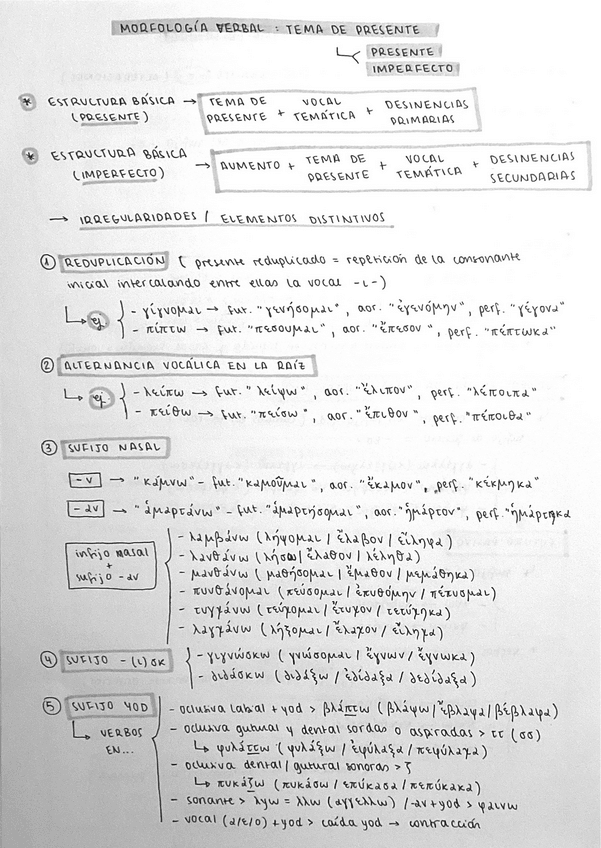 MORFOLOGÍA VERBAL : TEMA DE PRESENTE
PRESENTE
IMPERFECTO
* ESTRUCTURA BÁSICA → TEMA DE PRESENTE + VOCAL TEMÁTICA + DESINENCIAS PRIMARIAS
(PRESENTE)
* ESTRUCTURA BÁSICA → AUMENTO + TEMA DE PRESENTE + VOCAL TEMÁTICA + DESINENCIAS SECUNDARIAS
(IMPERFECTO)
→ IRREGULARIDADES / ELEMENTOS DISTINTIVOS
① REDUPLICACIÓN ( presente reduplicado = repetición de la consonante
inicial intercalando entre ellas la vocal -ι- )
ej - γίγνομαι → fut. "γενήσομαι", aor. "ἐγενόμην", perf. "γέγονα"
- πίπτω → fut. "πεσουμαι", aor. "ἔπεσον", perf. "πέπτωκα"
② ALTERNANCIA VOCÁLICA EN LA RAÍZ
ej - λείπω → fut. "λείψω", aor. "ἔλιπον", perf. "λέποιπα"
- πείθω → fut. "πείσω", aor. "ἔπιθον", perf. "πέποιθα"
③ SUFIJO NASAL
-ν → "κάμνω" - fut. "καμοῦμαι", aor. "ἔκαμον", perf. "κέκμηκα"
-αν → "ἁμαρτάνω" - fut. "ἁμαρτήσομαι", aor. "ἥμάρτον", perf. "ἡμάρτηκα
infijo nasal + sufijo -αν
- λαμβάνω (λήψομαι / ἔλαβον / εἴληφα)
- λανθάνω (λήσω / ἔλαθον / λέληθα)
- μανθάνω (μαθήσομαι / ἔμαθον / μεμάθηκα)
- πυνθάνομαι (πεύσομαι / ἐπυθόμην / πέπυσμαι)
- τυγχάνω (τεύχομαι / ἔτυχον / τετύχηκα)
- λαγχάνω (λήξομαι / ἔλαχον / εἴληχα)
④ SUFIJO -(ι)σκ - γιγνώσκω (γνώσομαι / ἔγνων / ἔγνωκα)
- διδάσκω (διδάξω / ἐδίδαξα / δεδίδαξα)
⑤ SUFIJO YOD - oclusiva labial + yod > βλάπτω (βλάψω / ἔβλαψα / βέβλαφα)
VERBOS EN... - oclusiva gutural y dental sordas o aspiradas > ττ (σσ)
φυλάττω (φυλάξω / ἐφύλαξα / πεφύλαχα)
- oclusiva dental / gutural sonoras > ζ
πυκάζω (πυκάσω / ἐπύκασα / πεπύκακα)
- sonante > λyω = λλω (αγγελλω) / -αν + yod > φαινω
- vocal (α/ε/ο) + yod > caída yod → contracción